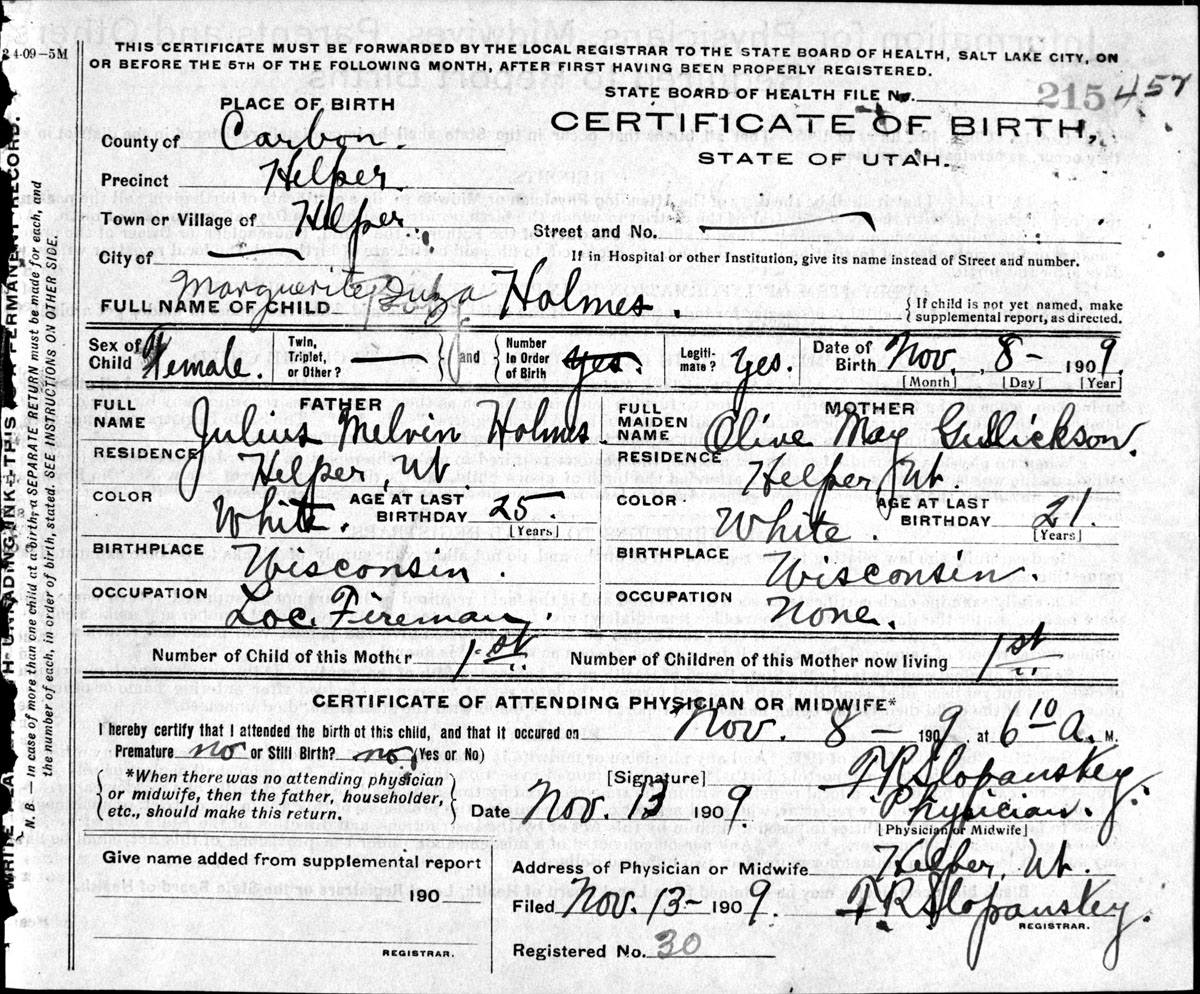 24-09-5M
THIS CERTIFICATE MUST BE FORWARDED BY THE LOCAL REGISTRAR TO THE STATE BOARD OF HEALTH, SALT LAKE CITY, ON
OR BEFORE THE 5TH OF THE FOLLOWING MONTH, AFTER FIRST HAVING BEEN PROPERLY REGISTERED.
STATE BOARD OF HEALTH FILE No. 215 457
PLACE OF BIRTH
CERTIFICATE OF BIRTH,
STATE OF UTAH.
County of Carbon.
Precinct Helper.
Town or Village of Helper.
Street and No. —
City of —
If in Hospital or other Institution, give its name instead of Street and number.
FULL NAME OF CHILD Marguerite Holmes.
{ If child is not yet named, make
supplemental report, as directed.
Sex of Child Female. Twin, Triplet, or Other? — } and { Number in Order of Birth Yes. Legiti-mate? Yes. Date of Birth Nov. 8 - 1909.
[Month] [Day] [Year]
FATHER
FULL NAME Julius Melvin Holmes.
RESIDENCE Helper, Ut.
COLOR White. AGE AT LAST BIRTHDAY 25. [Years]
BIRTHPLACE Wisconsin.
OCCUPATION Loc. Fireman.
MOTHER
FULL MAIDEN NAME Olive May Gullickson.
RESIDENCE Helper, Ut.
COLOR White. AGE AT LAST BIRTHDAY 21. [Years]
BIRTHPLACE Wisconsin.
OCCUPATION None.
Number of Child of this Mother 1st Number of Children of this Mother now living 1st
CERTIFICATE OF ATTENDING PHYSICIAN OR MIDWIFE*
I hereby certify that I attended the birth of this child, and that it occured on Nov. 8 - 1909, at 6 10 a. M.
Premature no or Still Birth? no. (Yes or No)
*When there was no attending physician
or midwife, then the father, householder,
etc., should make this return.
[Signature] F R Slopanskey.
Date Nov. 13 1909. Physician.
[Physician or Midwife]
Give name added from supplemental report
190
REGISTRAR.
Address of Physician or Midwife Helper, Ut.
Filed Nov. 13 - 1909. F R Slopanskey.
REGISTRAR.
Registered No. 30
THIS A PERMANENT RECORD.
N. B. — In case of more than one child at a birth, a SEPARATE RETURN must be made for each, and
the number of each, in order of birth, stated. SEE INSTRUCTIONS ON OTHER SIDE.